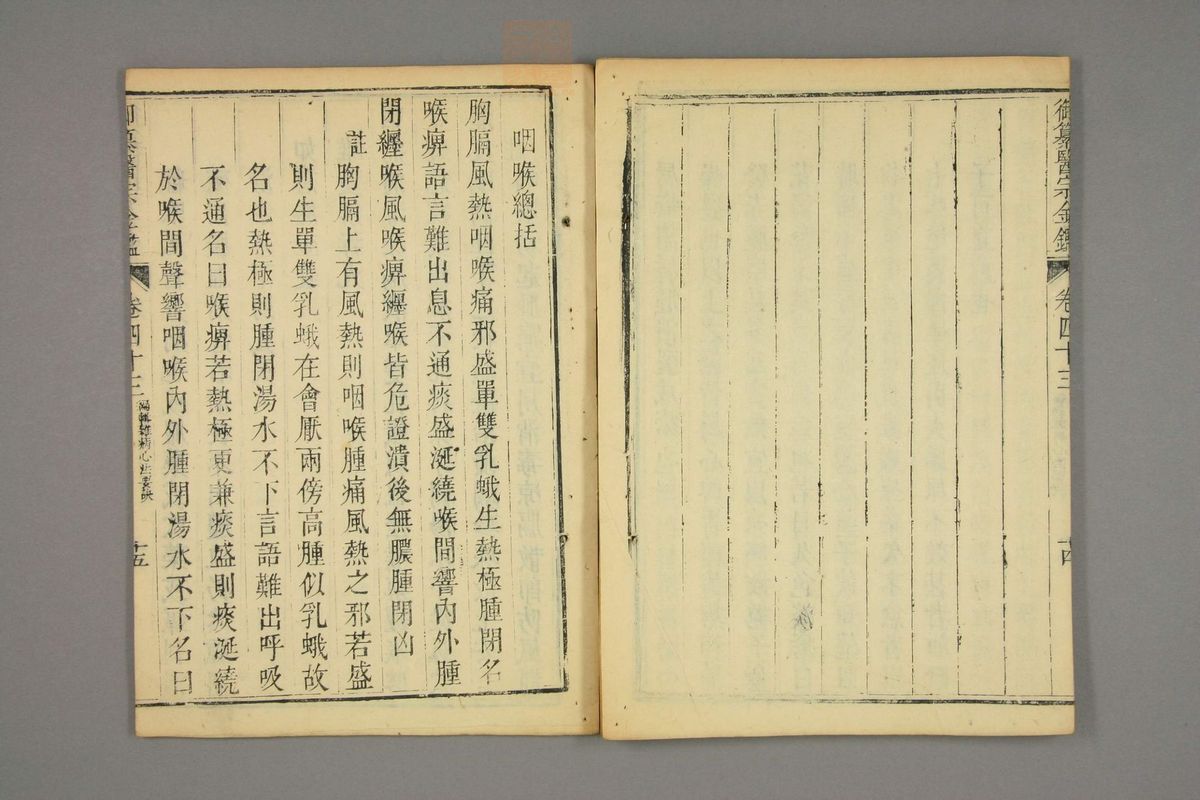 御纂醫宗金鑑
卷四十三
十四
咽喉總括
胸膈風熱咽喉痛邪盛單雙乳蛾生熱極腫閉名
喉痹語言難出息不通痰盛涎繞喉間響內外腫
閉纏喉風喉痹纏喉皆危證潰後無膿腫閉凶
註胸膈上有風熱則咽喉腫痛風熱之邪若盛
則生單雙乳蛾在會厭兩傍高腫似乳蛾故
名也熱極則腫閉湯水不下言語難出呼吸
不通名曰喉痹若熱極更兼痰盛則痰涎繞
於喉間聲響咽喉內外腫閉湯水不下名曰
御纂醫宗金鑑
卷四十三
十五